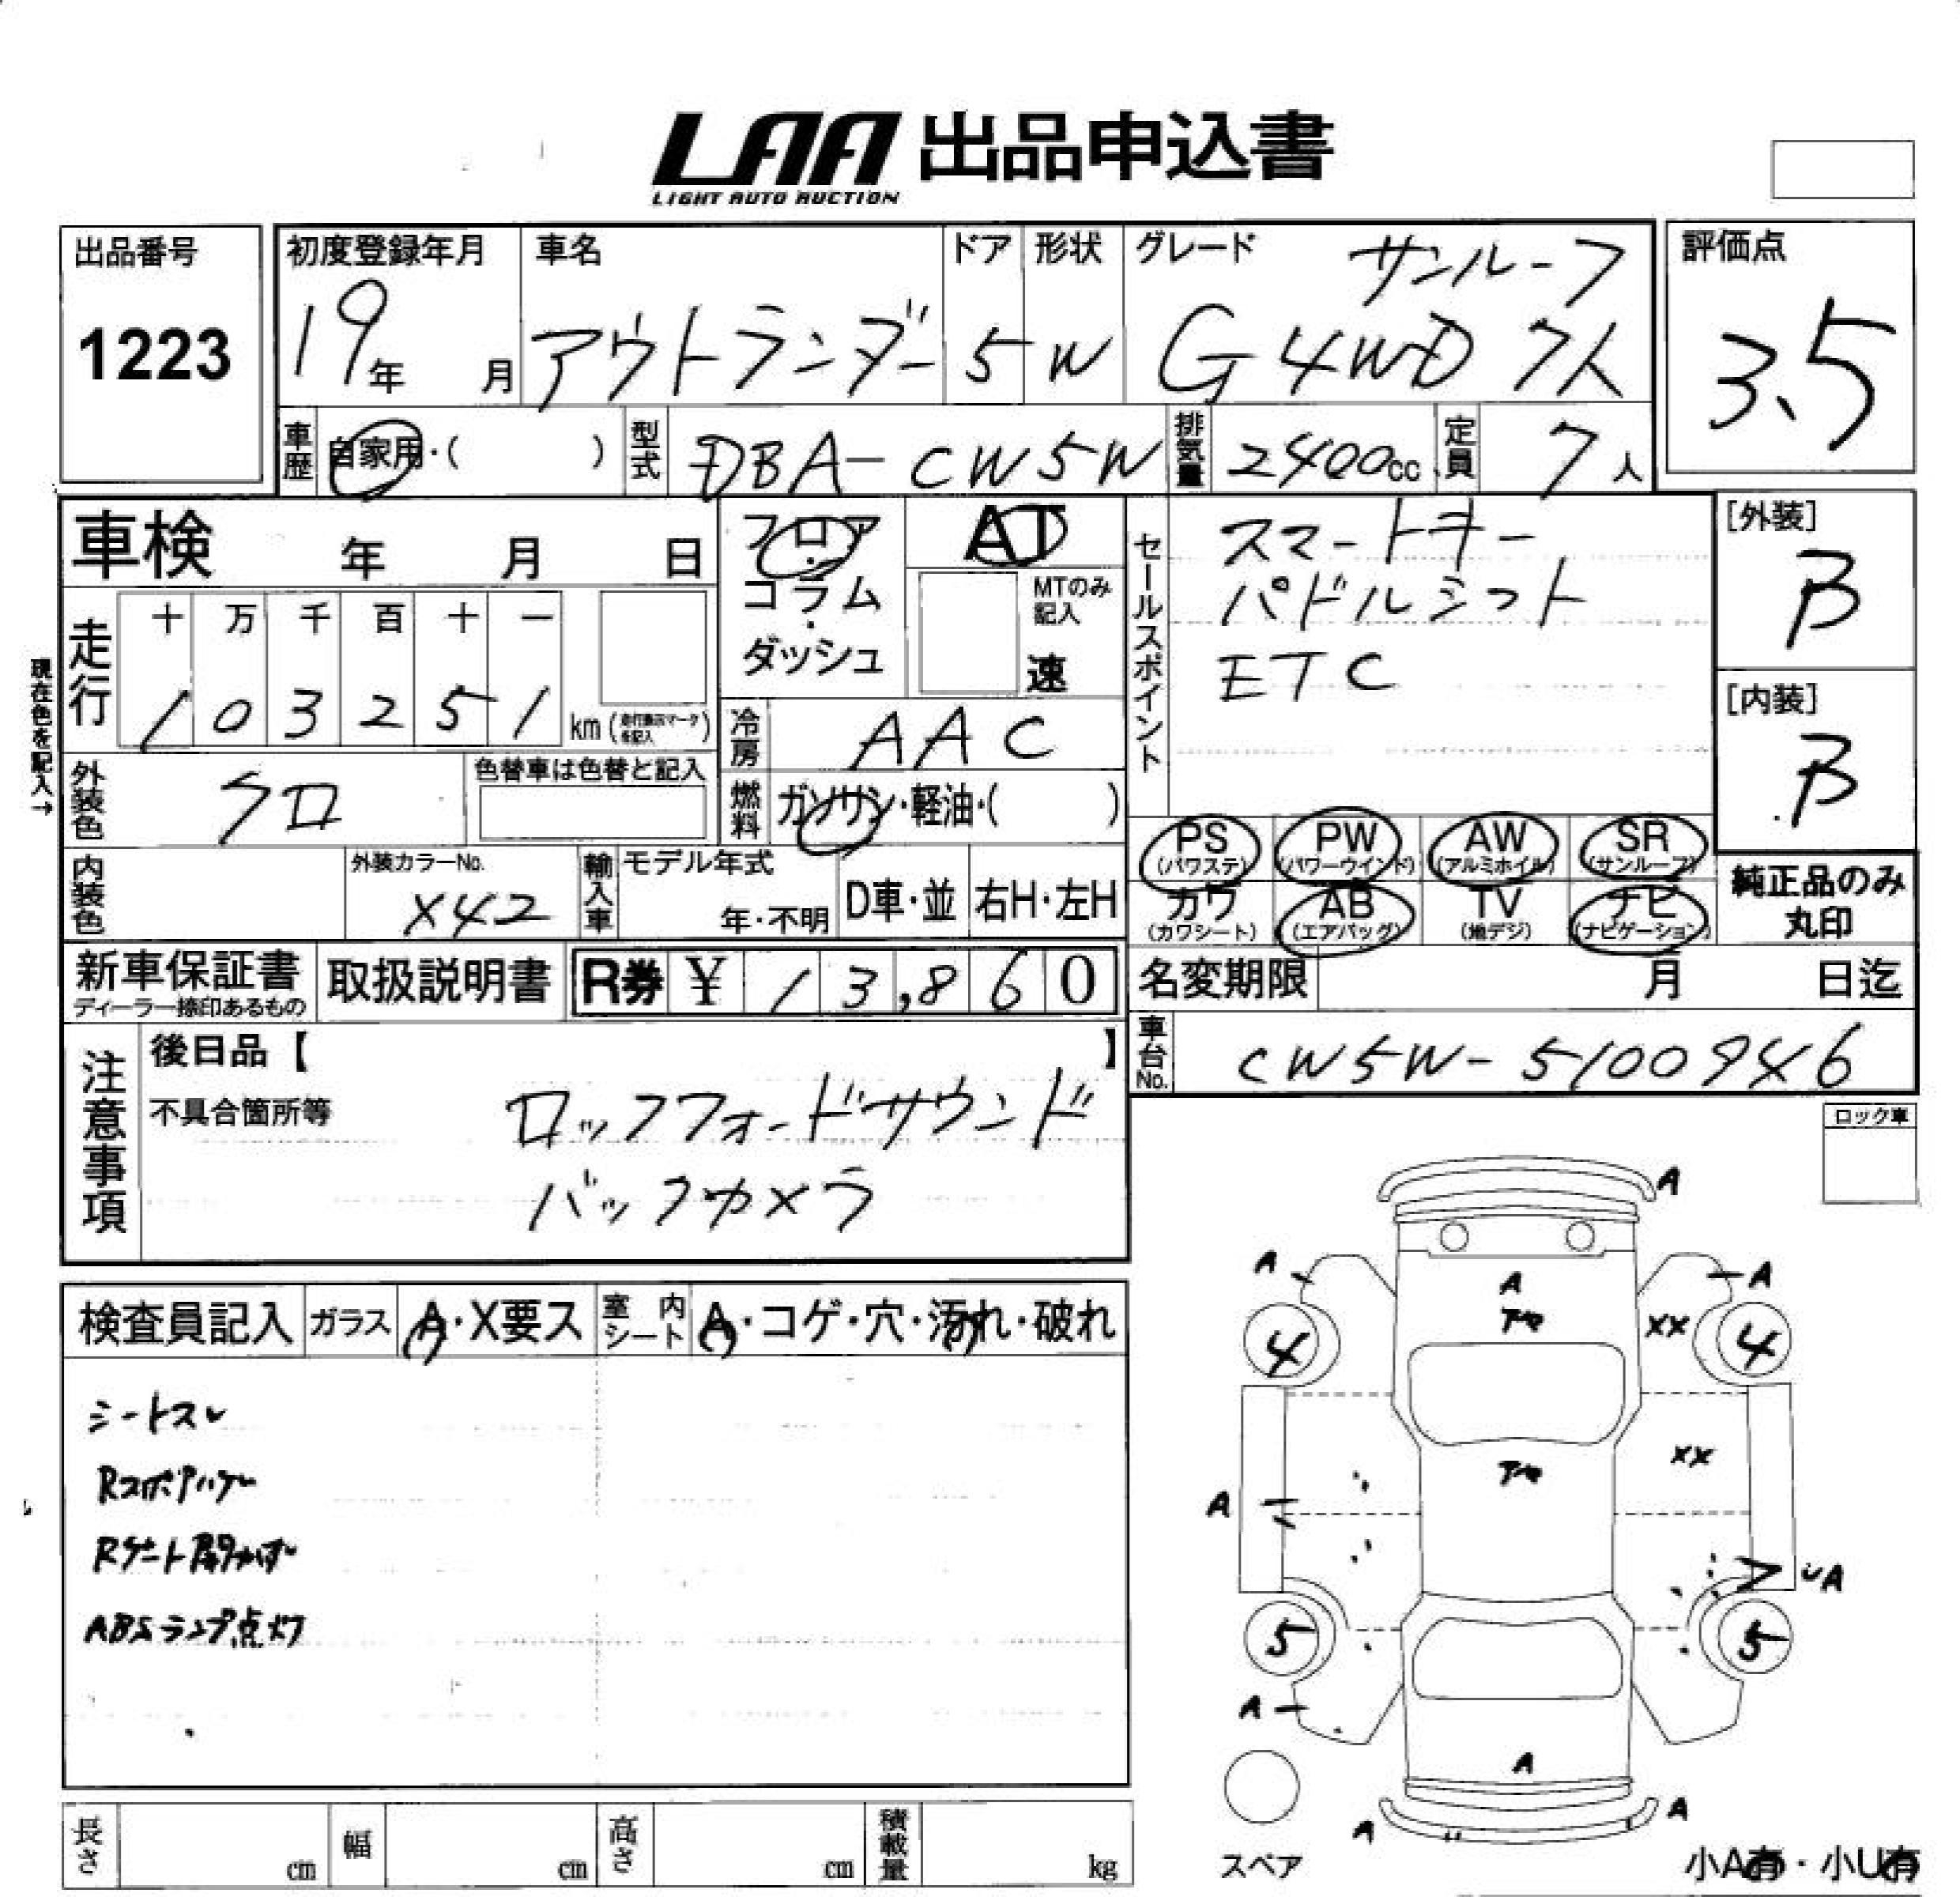 LAA 出品申込書
LIGHT AUTO AUCTION
出品番号
1223
初度登録年月
19年 月
車名
アウトランダー
ドア
5
形状
W
グレード
サンルーフ
G 4WD 7人
評価点
3.5
車歴
自家用・( )
型式
DBA-CW5W
排気量
2400cc
定員
7人
車検 年 月 日
フロア
・
コラム
・
ダッシュ
AT
MTのみ
記入
速
セールスポイント
スマートキー
パドルシフト
ETC
[外装]
B
[内装]
B
現在色を記入→
走行
十 万 千 百 十 一
1 0 3 2 5 1
km(走行表示マークを記入)
冷房
AAC
外装色
クロ
色替車は色替と記入
燃料
ガソリン・軽油・( )
PS
(パワステ)
PW
(パワーウインド)
AW
(アルミホイル)
SR
(サンルーフ)
カワ
(カワシート)
AB
(エアバッグ)
TV
(地デジ)
ナビ
(ナビゲーション)
純正品のみ
丸印
内装色
外装カラーNo.
X42
輸入車
モデル年式
年・不明
D車・並
右H・左H
新車保証書
ディーラー捺印あるもの
取扱説明書
R券 ¥ 13,860
名変期限 月 日迄
車台No.
CW5W-5100946
注意事項
後日品【 】
不具合箇所等
ロックフォードサウンド
バックカメラ
ロック車
検査員記入
ガラス
A・X要ス
室内
シート
A・コゲ・穴・汚れ・破れ
シートスレ
Rスポイラー
Rゲート
ABSランプ点灯
A
A
A
A
XX
4
4
XX
A
A
5
5
A
A
A
A
スペア
長さ cm
幅 cm
高さ cm
積載量 kg
小A有・小U有